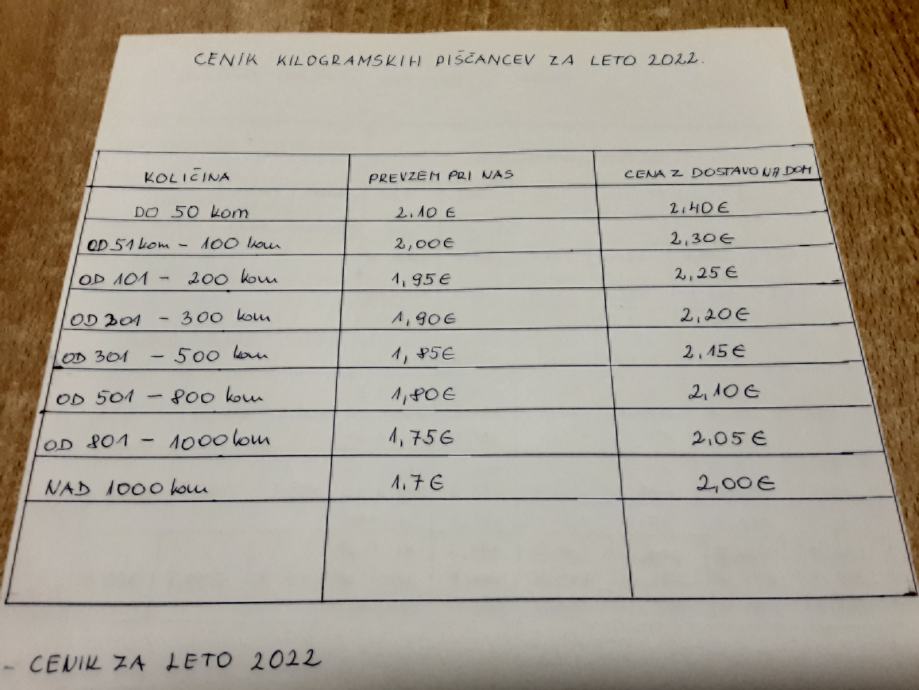 CENIK KILOGRAMSKIH PIŠČANCEV ZA LETO 2022.
KOLIČINA PREVZEM PRI NAS CENA Z DOSTAVO NA DOM
DO 50 kom 2.10 € 2,40 €
OD 51 kom - 100 kom 2,00€ 2,30€
OD 101 - 200 kom 1,95€ 2,25€
OD 201 - 300 kom 1,90€ 2,20€
OD 301 - 500 kom 1,85€ 2,15€
OD 501 - 800 kom 1,80€ 2,10€
OD 801 - 1000 kom 1,75€ 2,05€
NAD 1000 kom 1.7€ 2,00€
- CENIK ZA LETO 2022